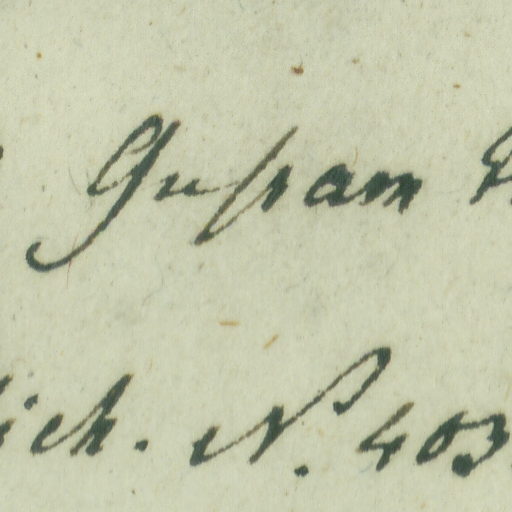 Guſsam
ich. N. 403